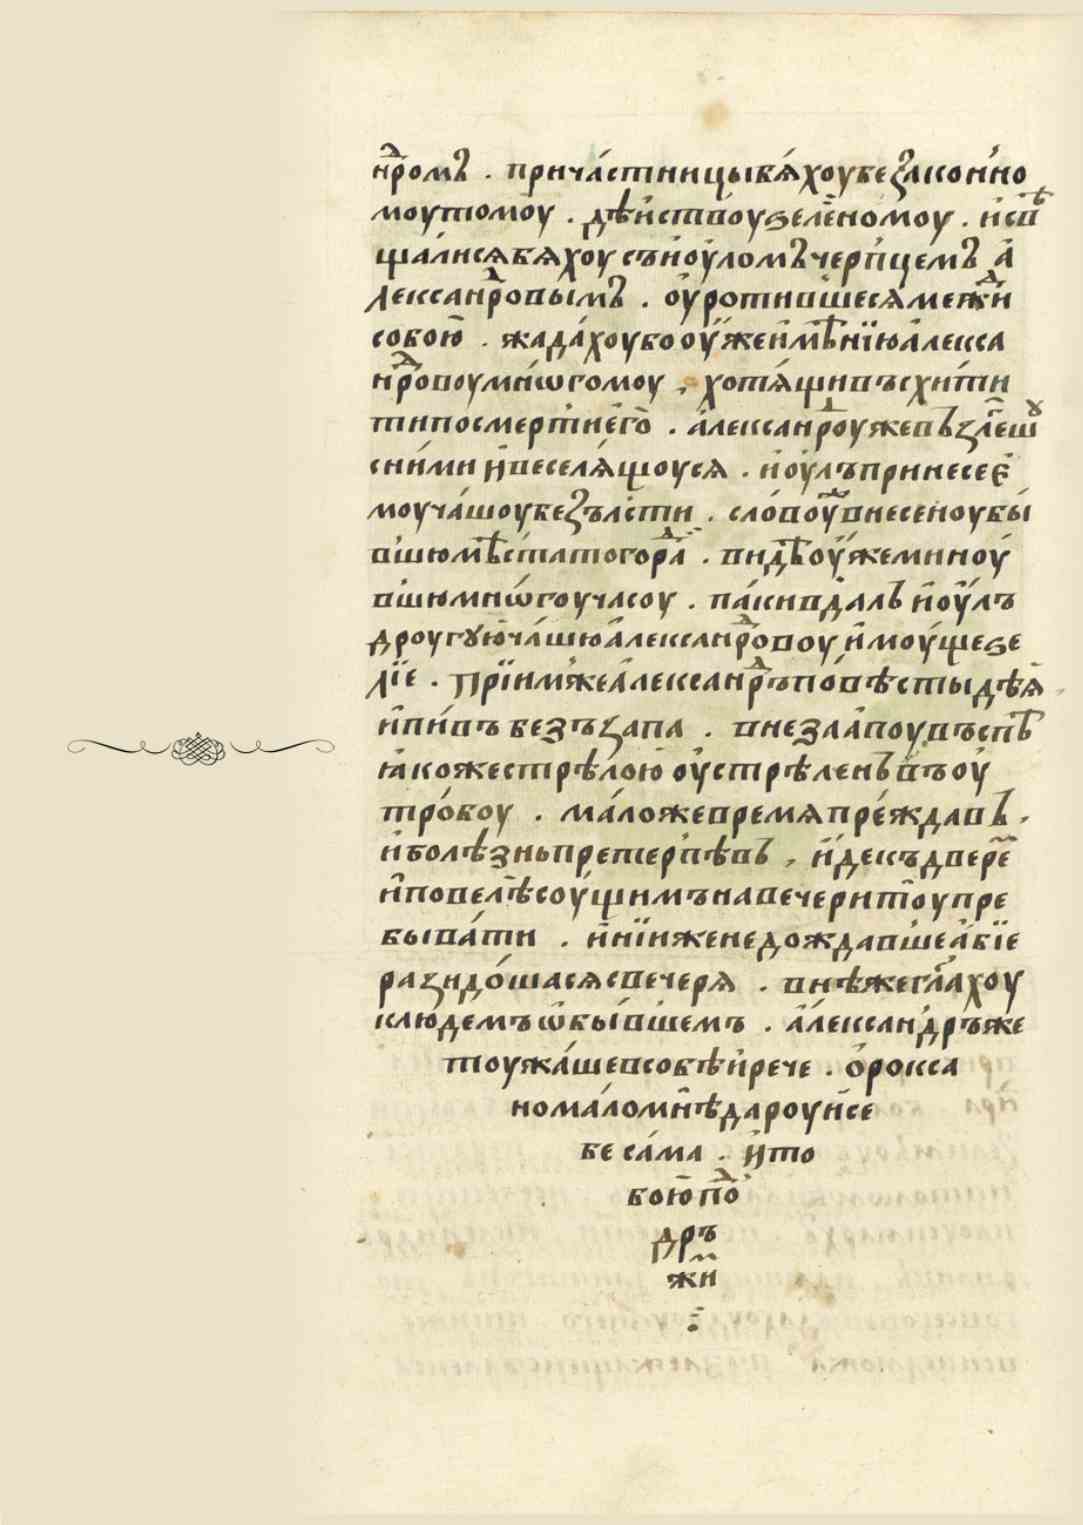 нⷣромъ . прича́стницы бѧ́хоу беꙁако́нно
моу томоу . дѣи́ствоу ꙁеле́номоу . и҆ свѣ
ща́лисѧ бѧхоу съ і҆оу́ломъ че́рпцемъ а҆
леѯанⷣровымъ . оу҆ротившесѧ межⷣи
собою . жада́хоу бо оу҆́же и҆мѣ́нїю а҆леѯа
нⷣровоу мнѡ́гомоу , хотѧ́щи въсхи́ти
ти по сме́рти е҆го̀ . а҆леѯанⷣроу же въꙁле́шꙋ
с ни́ми и҆ веселѧ́щоусѧ . і҆оу́лъ принесе е҆
моу ча́шоу беꙁъ льсти . сло́воу в несеноу бы́
вшю мѣста тогораⷣ . видѣ оу҆́же миноу́
вшю мнѡ́гоу часоу . па́ки вдалъ і҆оу́лъ
дроугꙋю ча́шю а҆леѯанⷣровоу и҆моу́ще ѕе
лїе . прїимъ же а҆леѯанⷣръ по́вѣсты дѣѧ
и҆ пи́въ беꙁъ ꙁапа . внеꙁаапоу въспѣ
ꙗ҆коже стрѣ́лою оу҆стрѣленъ въ оу҆
тро́боу . ма́ло же времѧ пре́ждавъ .
и҆ болѣꙁнь претерпѣвъ , и҆де къ двере
и҆ повелѣ соу́щимъ на вечери тоу пре
быва́ти . и҆нїи же не дождавше а҆бїе
раꙁидо́шасѧ с вечерѧ . внѣ же гл҃ахоу
к людемъ ѡ҆ бы́вшемъ . а҆леѯандръ же
тоужа́ше в собѣ и҆ рече . о҆ роѯа
но мало мнѣ дароуи се
бе са́ма . и҆ то
бою поⷣ
дръ
жи